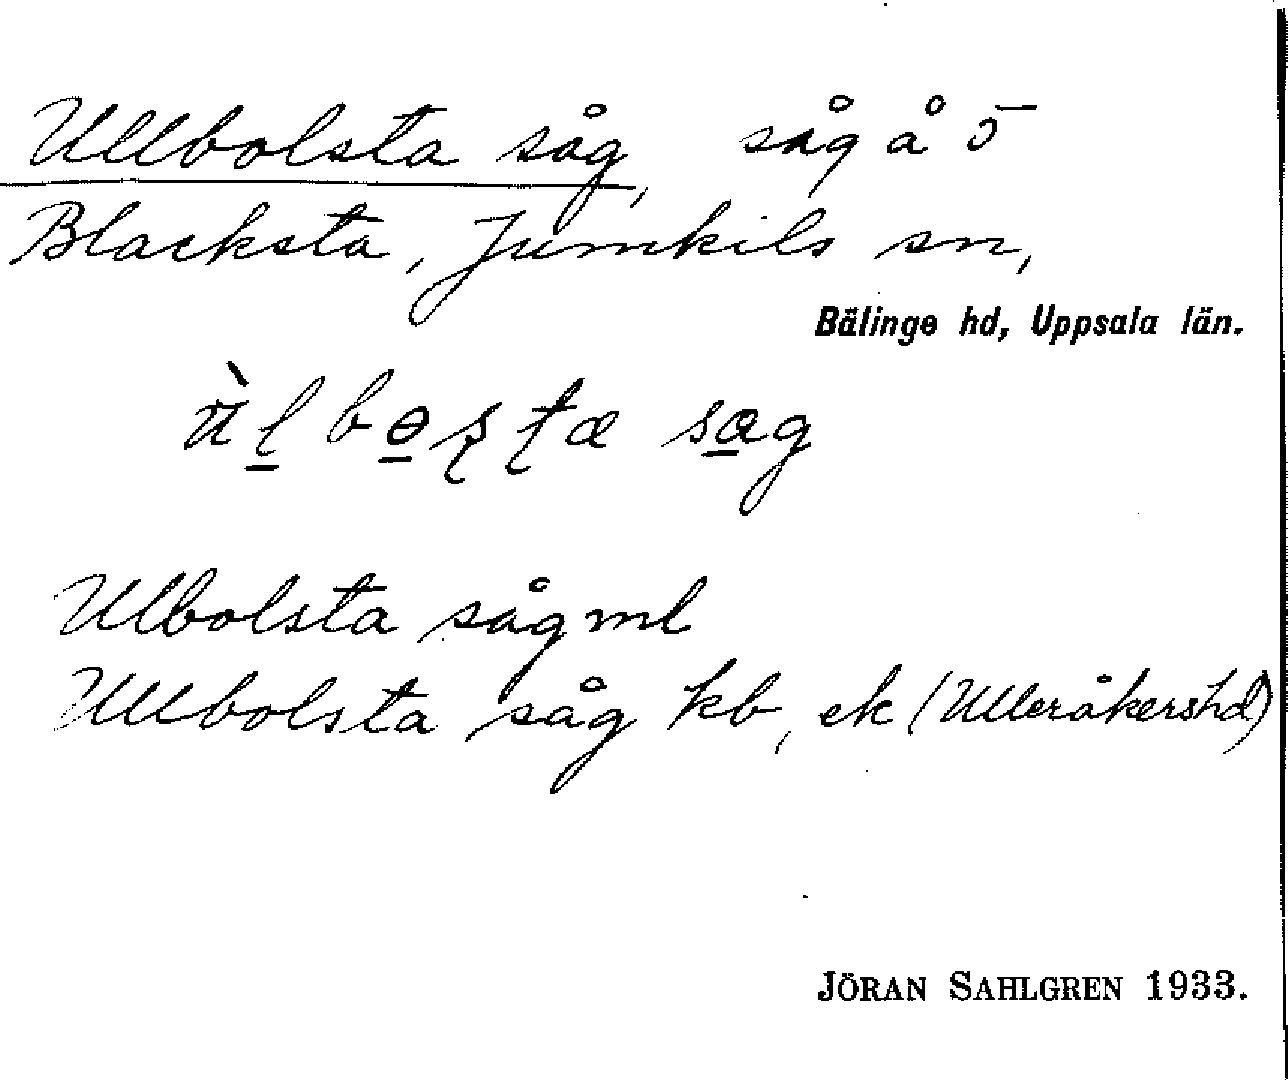 Ullbolsta såg, såg å 5
Blacksta, Jumkils sn,
Bälinge hd, Uppsala län.
Ulbolsta sågml
Ullbolsta såg kb, ek (Ulleråkershd)
JÖRAN SAHLGREN 1933.